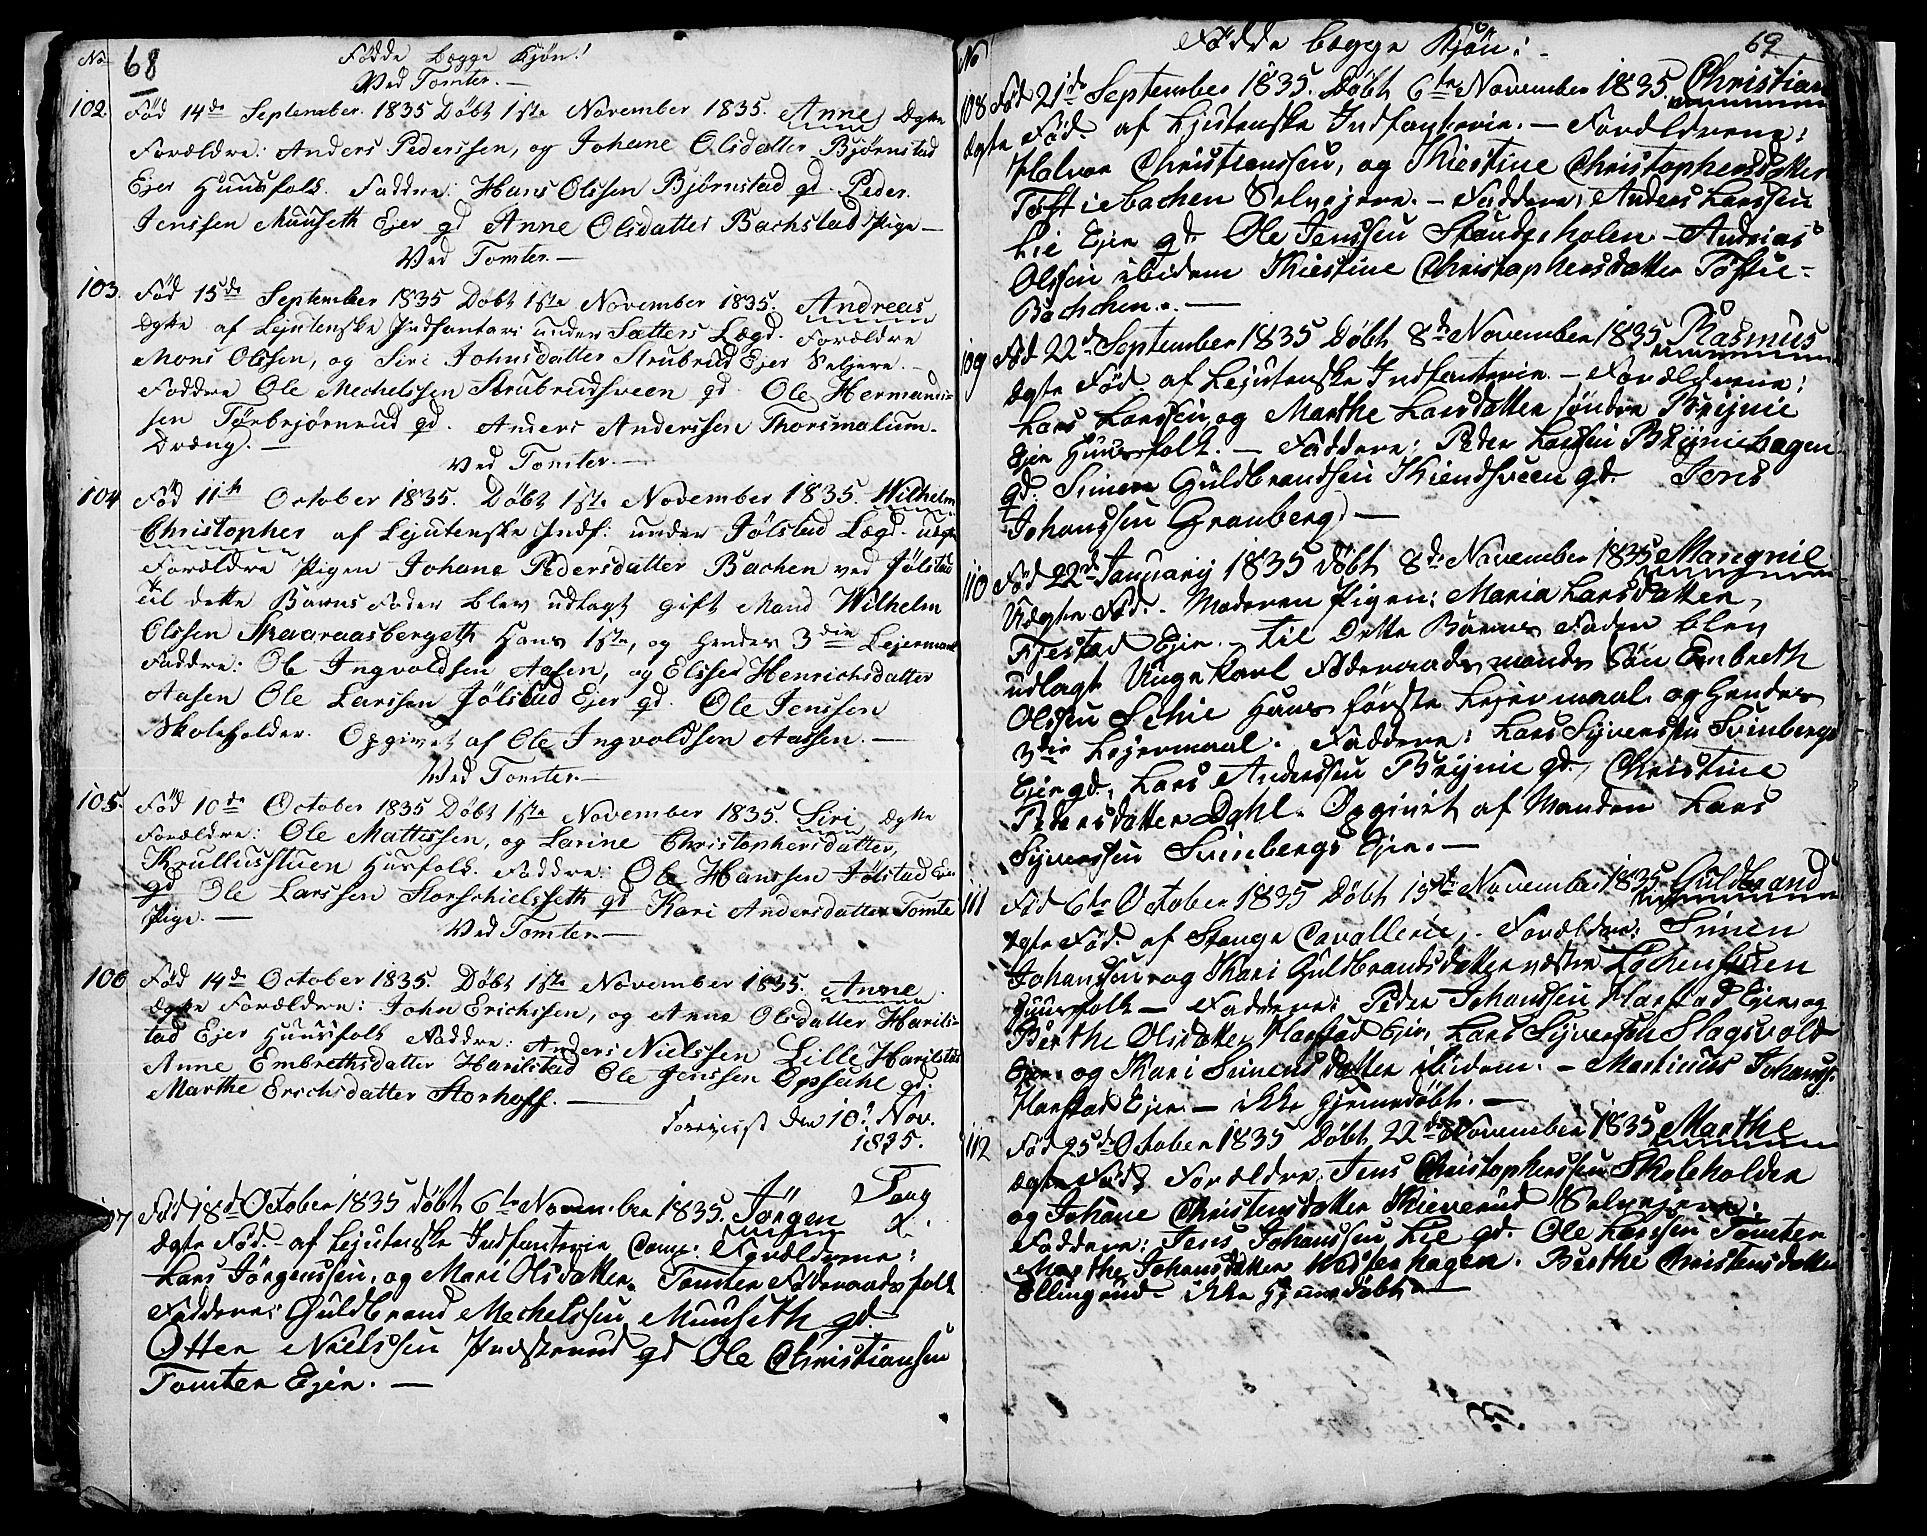 No 68 Fødde begge Kjøn!
Ved Tomter. —
102. Fød 14de September 1835 Døbt 1ste November 1835. Anne Ægte
Forældre: Anders Pederssen, og Johane Olsdatter Bjørnstad
Ejer Huusfolk. Faddre: Hans Olssen Bjørnstad gd. Peder
Jenssen Muuseth Ejer gd Anne Olsdatter Bachstad Pige —
Ved Tomter. —
103. Fød 15de September 1835 Døbt 1ste November 1835. Andreas
Ægte af Lejutenske Indfanteri under Sætters Lægd. Forældre
Mons Olssen, og Siri Johnsdatter Strubrud Ejer Selejere. —
Faddre Ole Mechelssen Strubrudsveen gd. Ole Hermand-
sen Torbrjørnrud gd. Anders Anderssen Thorsmalum.
Dræng. —
Ved Tomter. —
104 Fød 11te October 1835. Døbt 1ste November 1835. Wilhelm
Christopher af Lejutenske Indf: under Jølstad Lægd. uægte
Forældre Pigen Johane Pedersdatter Bachen ved Jølstad
til dette Barns Fader blev udlagt gift Mand Wilhelm
Olssen Skaaraasbergeth Hans 1ste, og hendes 3die Lejermaal
Faddre: Ole Ingvoldsen Aasen, og Elsse Henrichsdatter
Aasen Ole Larssen Jølstad Ejer gd. Ole Jenssen
Skoleholder. Opgivet af Ole Ingvoldsen Aassen. —
Ved Tomter. —
105. Fød 10de October 1835 Døbt 1ste November 1835. Siri Ægte
Forældre: Ole Mattissen, og Larine Christophersdatter,
Krullusstuen Husfolk. Faddre: Ole Hanssen Jølstad Ejer
gd Ole Larssen Storschielsseth gd Kari Andersdatter Tomte
Pige. —
Ved Tomter. —
106 Fød 14de October 1835. Døbt 1ste November 1835. Anne
Ægte Forældre: John Erichssen, og Anne Olsdatter Harils-
tad Ejer Huusfolk Faddre: Anders Nielssen Lille Harilstad
Anne Embrethsdatter Harilstad Ole Jenssen Opsahl gd:
Marthe Erichsdatter Storhoff. —
Foreviist den 10. Nov.
1835.
107 Fød 18de October 1835 døbt 6te November 1835. Jörgen
Ægte Fød. af Lejutenske Indfanterie Comp. Forældrene:
Lars Jörgenssen, og Mari Olsdatter Tomter Føderaadsfolk
Faddere: Guldbrand Mechelssen Muuseth gd.
Otter Nielssen Pudsrud gd Ole Christiansen
Tomter Ejer. —
No Fødde begge Kjøn: 69
108 Fød 21de September 1835. Døbt 6te November 1835. Christian
Ægte Fød. af Ljutenske Indfanterie. — Forældrene:
Halvor Christianssen, og Kiestine Christophersdatter
Töftiebachen Selvejere. — Faddere, Anders Larssen
Lie Ejer gd. Ole Jenssen Skundesholen — Andrias
Olssen ibidem Kiestine Christophersdatter Töftie-
Bachchen. —
109 Fød 22de September 1835 Døbt 8de November 1835 Rasmus
Ægte Fød. af Lejutenske Indfanterie. — Forældrene:
Lars Larssen og Marthe Larsdatter søndre Brijnie
Ejer Huusfolk. — Faddere: Peder Larssen Brijniehagen
gd. Simen Guldbrandsen Kiendsveen gd. Jens
Johanssen Granberg. —
110 Fød 22de January 1835 døbt 8de November 1835 Mangnil
Uægte Fød. Moderen Pigen: Maria Larsdatter,
Fjestad Ejer. til Dette Barns Fader blev
udlagt Unge Karl Føderaadsmands Søn Embreth
Olssen Sehie Hans første Lejermaal og hendes
3die Lejermaal. Faddere: Lars Syverssen Svinbergs
Ejer gd, Lars Anderssen Brijnie gd. Christine
Pedersdatter Dahl. Opgivet af Manden Lars
Syverssen Svinbergs Ejer. —
111 Fød 6te October 1835 Døbt 15de November 1835 Guldbrand
Ægte Fød. af Stange Cavallerie,. Forældre: Simen
Johanssen og Kari Guldbrandsdatter vestre Lochenstuen
Huusfolk — Faddere: Peder Johanssen Harstad Ejer og
Berthe Olsdatter Harstad Ejer, Lars Syverssen Slagsvold
Ejer og Kari Simensdatter ibidem. — Martinus Johans.
Harstad Ejer — ikke hjemdøbt. —
112 Fød 25de October 1835 Døbt 22de November 1835 Marthe
Ægte Fød Forældre: Jens Christopherssen Skoleholder
og Johane Christensdatter Kieverud Selvejere.
Faddere: Jens Johanssen Lie gd. Ole Larssen Tomter
Marthe Johansdatter Westerhagen. Berthe Christensdatter
Ellingrud — ikke hjemdøbt —